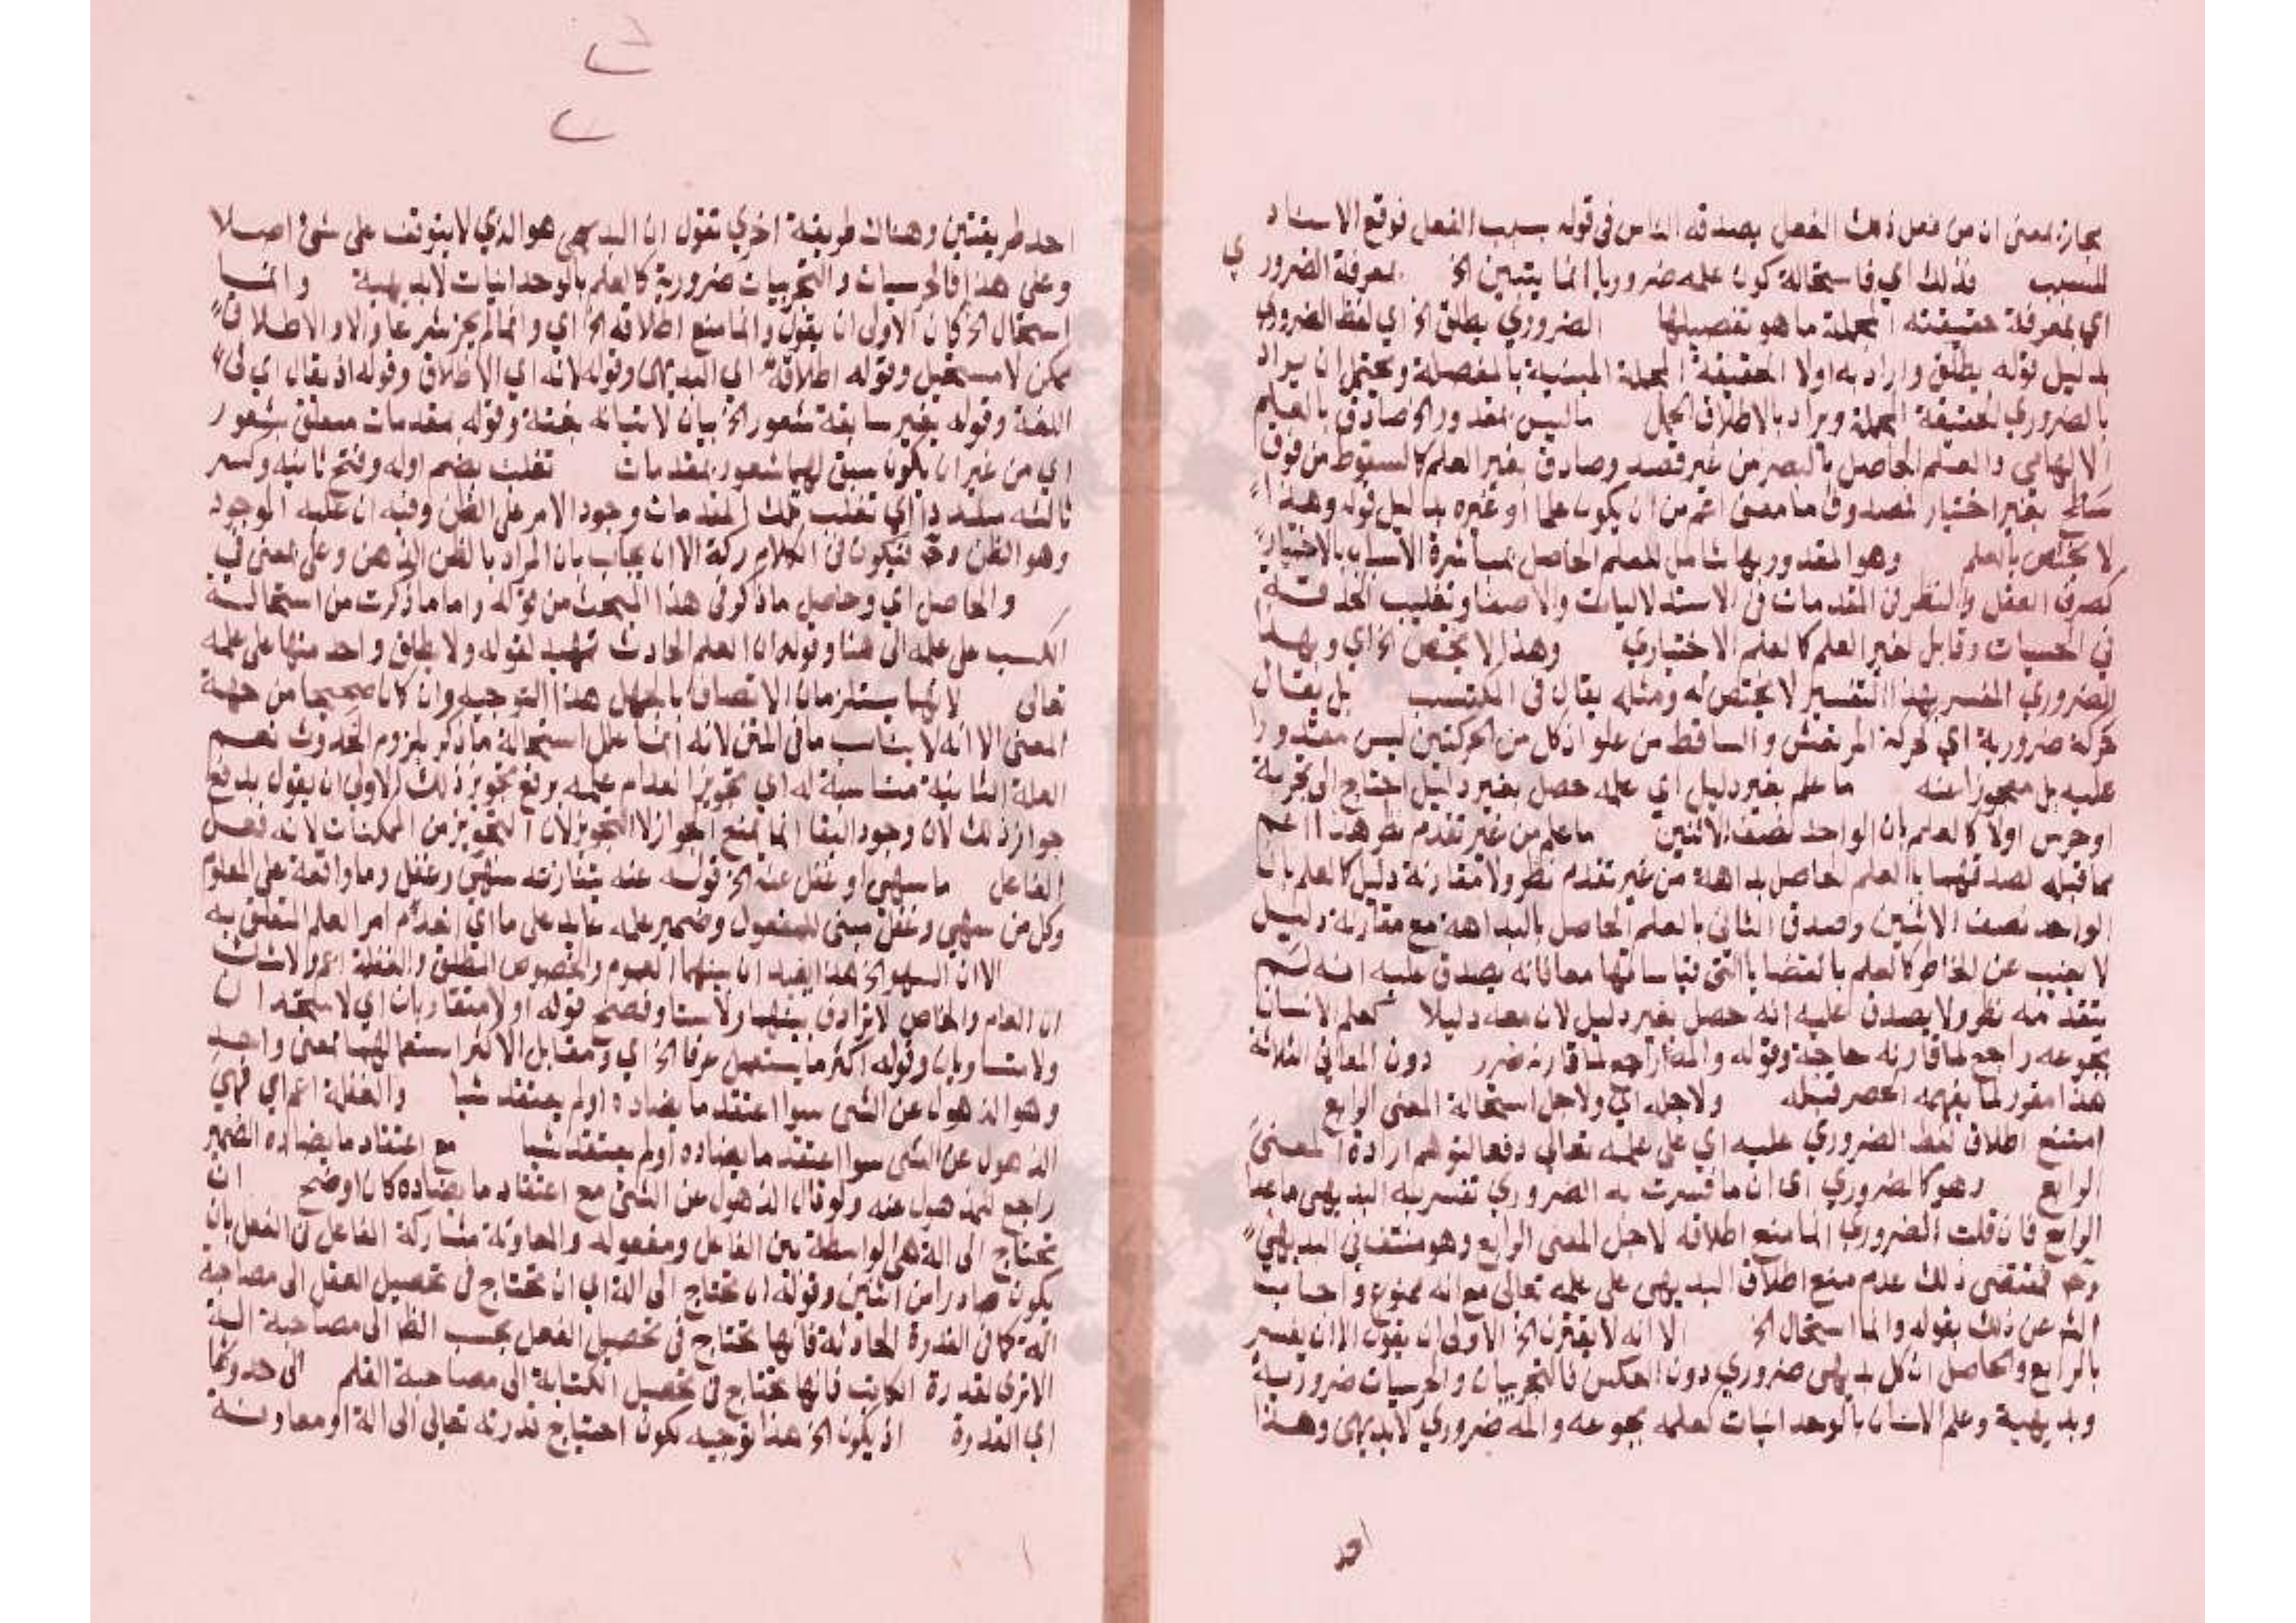 مجازة بمعنى ان من فعل ذلك الفعل بصدقه الناس في قوله بسبب الفعل فوقع الاسناد
للسبب فذلك اي فاستحالة كون علمه ضروريا انما يتبين الخ بمعرفة الضروري
اي بمعرفة حقيقته المجملة ما هو تفصيلها الضروري يطلق الخ اي لفظ الضروري
بدليل قوله يطلق واراد به اولا الحقيقة المجملة المبنية بالمفصلة ويحتمل ان يراد
بالضروري الحقيقة المجملة ويراد بالاطلاق الحمل ما ليس بمقدور الخ صادق بالعلم
الالهامي والعلم الحاصل بالبصر من غير قصد وصادق بغير العلم كالسقوط من فوق
سطح بغير اختيار فمصدوق ما معنى اعم من ان يكون علما او غيره بدليل قوله وهذا
لا يختص بالعلم وهو المقدور بها شامل للعلم الحاصل بمباشرة الاسباب بالاختيار
كصرف العقل والنظر في المقدمات في الاستدلاليات والاصغا وتقليب الحدقة
في الحسيات وقابل لغير العلم كالعلم الاختياري وهذا لا يختص الخ اي وبهذا
الضروري المفسر بهذا التفسير لا يختص له ومثله يقال في المكتسب بل يقال
حركة ضرورية اي كحركة المرتعش والساقط من علو اذ كل من الحركتين ليس مقدورا
عليه بل معجوزا عنه ما علم بغير دليل اي علمه حصل بغير دليل احتاج الى تجربة
او حدس اولا كالعلم بان الواحد نصف الاثنين ما علم من غير تقدم نظر هذا اعم
مما قبله لصدقهما بالعلم الحاصل بداهة من غير تقدم نظر ولا مقارنة دليل كالعلم بان
الواحد نصف الاثنين وصدق الثاني بالعلم الحاصل بالبداهة مع مقارنة دليل
لا يغيب عن الخاطر كالعلم بالقضايا التي قياساتها معها فانه يصدق عليه انه لم
يتقدمه نظر ولا يصدق عليه انه حصل بغير دليل لان معه دليلا كعلم الانسان
بجوعه راجع لما قارنه حاجة وقوله والمه راجع لما قارنه ضرر دون المعاني الثلاثة
هذا مقرر لما يفهمه الحصر قبله ولاجله اي ولاجل استحالة المعنى الرابع
امتنع اطلاق لفظ الضروري عليه اي على علمه تعالى دفعا لتوهم ارادة المعنى
الرابع وهو كالضروري اي ان ما فسرت به الضروري تفسر به البديهي ما عدا
الرابع فان قلت الضروري انما منع اطلاقه لاجل المعنى الرابع وهو منتف في البديهي
وح فمقتضى ذلك عدم منع اطلاق البديهي على علمه تعالى مع انه ممنوع واجاب
الشم عن ذلك بقوله وانما استحال الخ الا انه لا يقترن الخ الاولى ان يقول الا ان يفسر
بالرابع والحاصل ان كل بديهي ضروري دون العكس فالتجربيات والحدسيات ضرورية
وبديهية وعلم الانسان بالوحدانيات كعلمه بجوعه والمه ضروري لا بديهي وهذا
احد
احد طريقتين وهناك طريقة اخري تقول ان البديهي هو الذي لا يتوقف على شئ اصلا
وعلى هذا فالحدسيات والتجربيات ضرورية كالعلم بالوحدانيات لا بديهية وانما
استحال الخ كان الاولى ان يقول وانما منع اطلاقه الخ اي وانما لم يجز شرعا والا والاطلاق
ممكن لا مستحيل وقوله اطلاقه اي البديهي وقوله لانه اي الاطلاق وقوله اذ يقال اي في
اللغة وقوله بغير سابقة شعور الخ بيان لاتيانه بغتة وقوله بمقدمات متعلق بشعور
اي من غير ان يكون سبق لهما شعور بمقدمات تغلب بضم اوله وفتح ثانيه وكسر
ثالثه مشددا اي تغلب تلك المقدمات وجود الامر على الظن وفيه ان غلبة الوجود
وهو الظن وح فيكون في الكلام ركة الا ان يجاب بان المراد بالظن الذهن وعلى بمعنى في
والحاصل اي وحاصل ما ذكر في هذا المبحث من قوله واما ما ذكرت من استحالة
الكسب على علمه الى هنا وقوله ان العلم الحادث تمهيد لقوله ولا يطلق واحد منها على علمه
تعالى لانهما يستلزمان الاتصاف بالجهل هذا التوجيه وان كان صحيحا من جهة
المعنى الا انه لا يناسب ما في المتن لانه انما علل استحالة ما ذكر بلزوم الحدوث نعم
العلة الثانية مناسبة له اي تجويز انعدام علمه برفع تجويز ذلك الاولى ان يقول بدفع
جواز ذلك لان وجود البقا انما يمنع الجواز لا التجويز لان التجويز من الممكنات لانه فعل
الفاعل ما سهي او غفل عنه الخ قوله عنه يتنازعه سهي وغفل وما واقعة على المعلوم
وكل من سهي وغفل مبني للمفعول وضمير علمه عايد على ما اي انعدام امر العلم المتعلق به
الا ان السهو الخ هذا يفيد ان بينهما العموم والخصوص المطلق والغفلة اعم ولا شك
ان العام والخاص لا ترادف بينهما ولا تساو فصح قوله اولا متقاربان اي لا متحدان
ولا متساويان وقوله اكثر ما يستعمل عرفا الخ اي ومقابل الاكثر استعمالهما بمعنى واحد
وهو الذهول عن الشي سوا اعتقد ما يضاده او لم يعتقد شيا والغفلة اعم اي فهي
الذهول عن الشي سوا اعتقد ما يضاده او لم يعتقد شيا مع اعتقاد ما يضاده الضمير
راجع للمذهول عنه ولو قال الذهول عن الشي مع اعتقاد ما يضاده كان اوضح ان
تحتاج الى الة هي الواسطة بين الفاعل ومفعوله والمعاونة مشاركة الفاعل في الفعل بان
يكون صادرا من اثنين وقوله ان تحتاج الى الة اي ان تحتاج في تحصيل الفعل الى مصاحبة
الة كما في القدرة الحادثة فانها تحتاج في تحصيل الفعل بحسب الظا الى مصاحبة الة
الا ترى لقدرة الكاتب فانها تحتاج في تحصيل الكتابة الى مصاحبة القلم الى حدوثها
اي القدرة اذ يكون الخ هذا توجيه لكون احتياج قدرته تعالى الى الة او معاونة